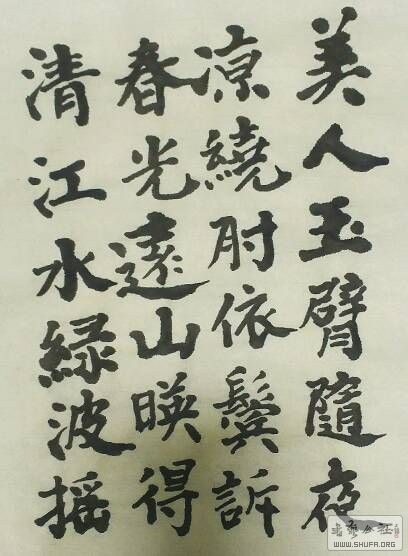 美人玉臂隨夜
涼繞肘依鬢訴
春光遠山暎得
清江水緑波摇
WWW.SHUFA.ORG